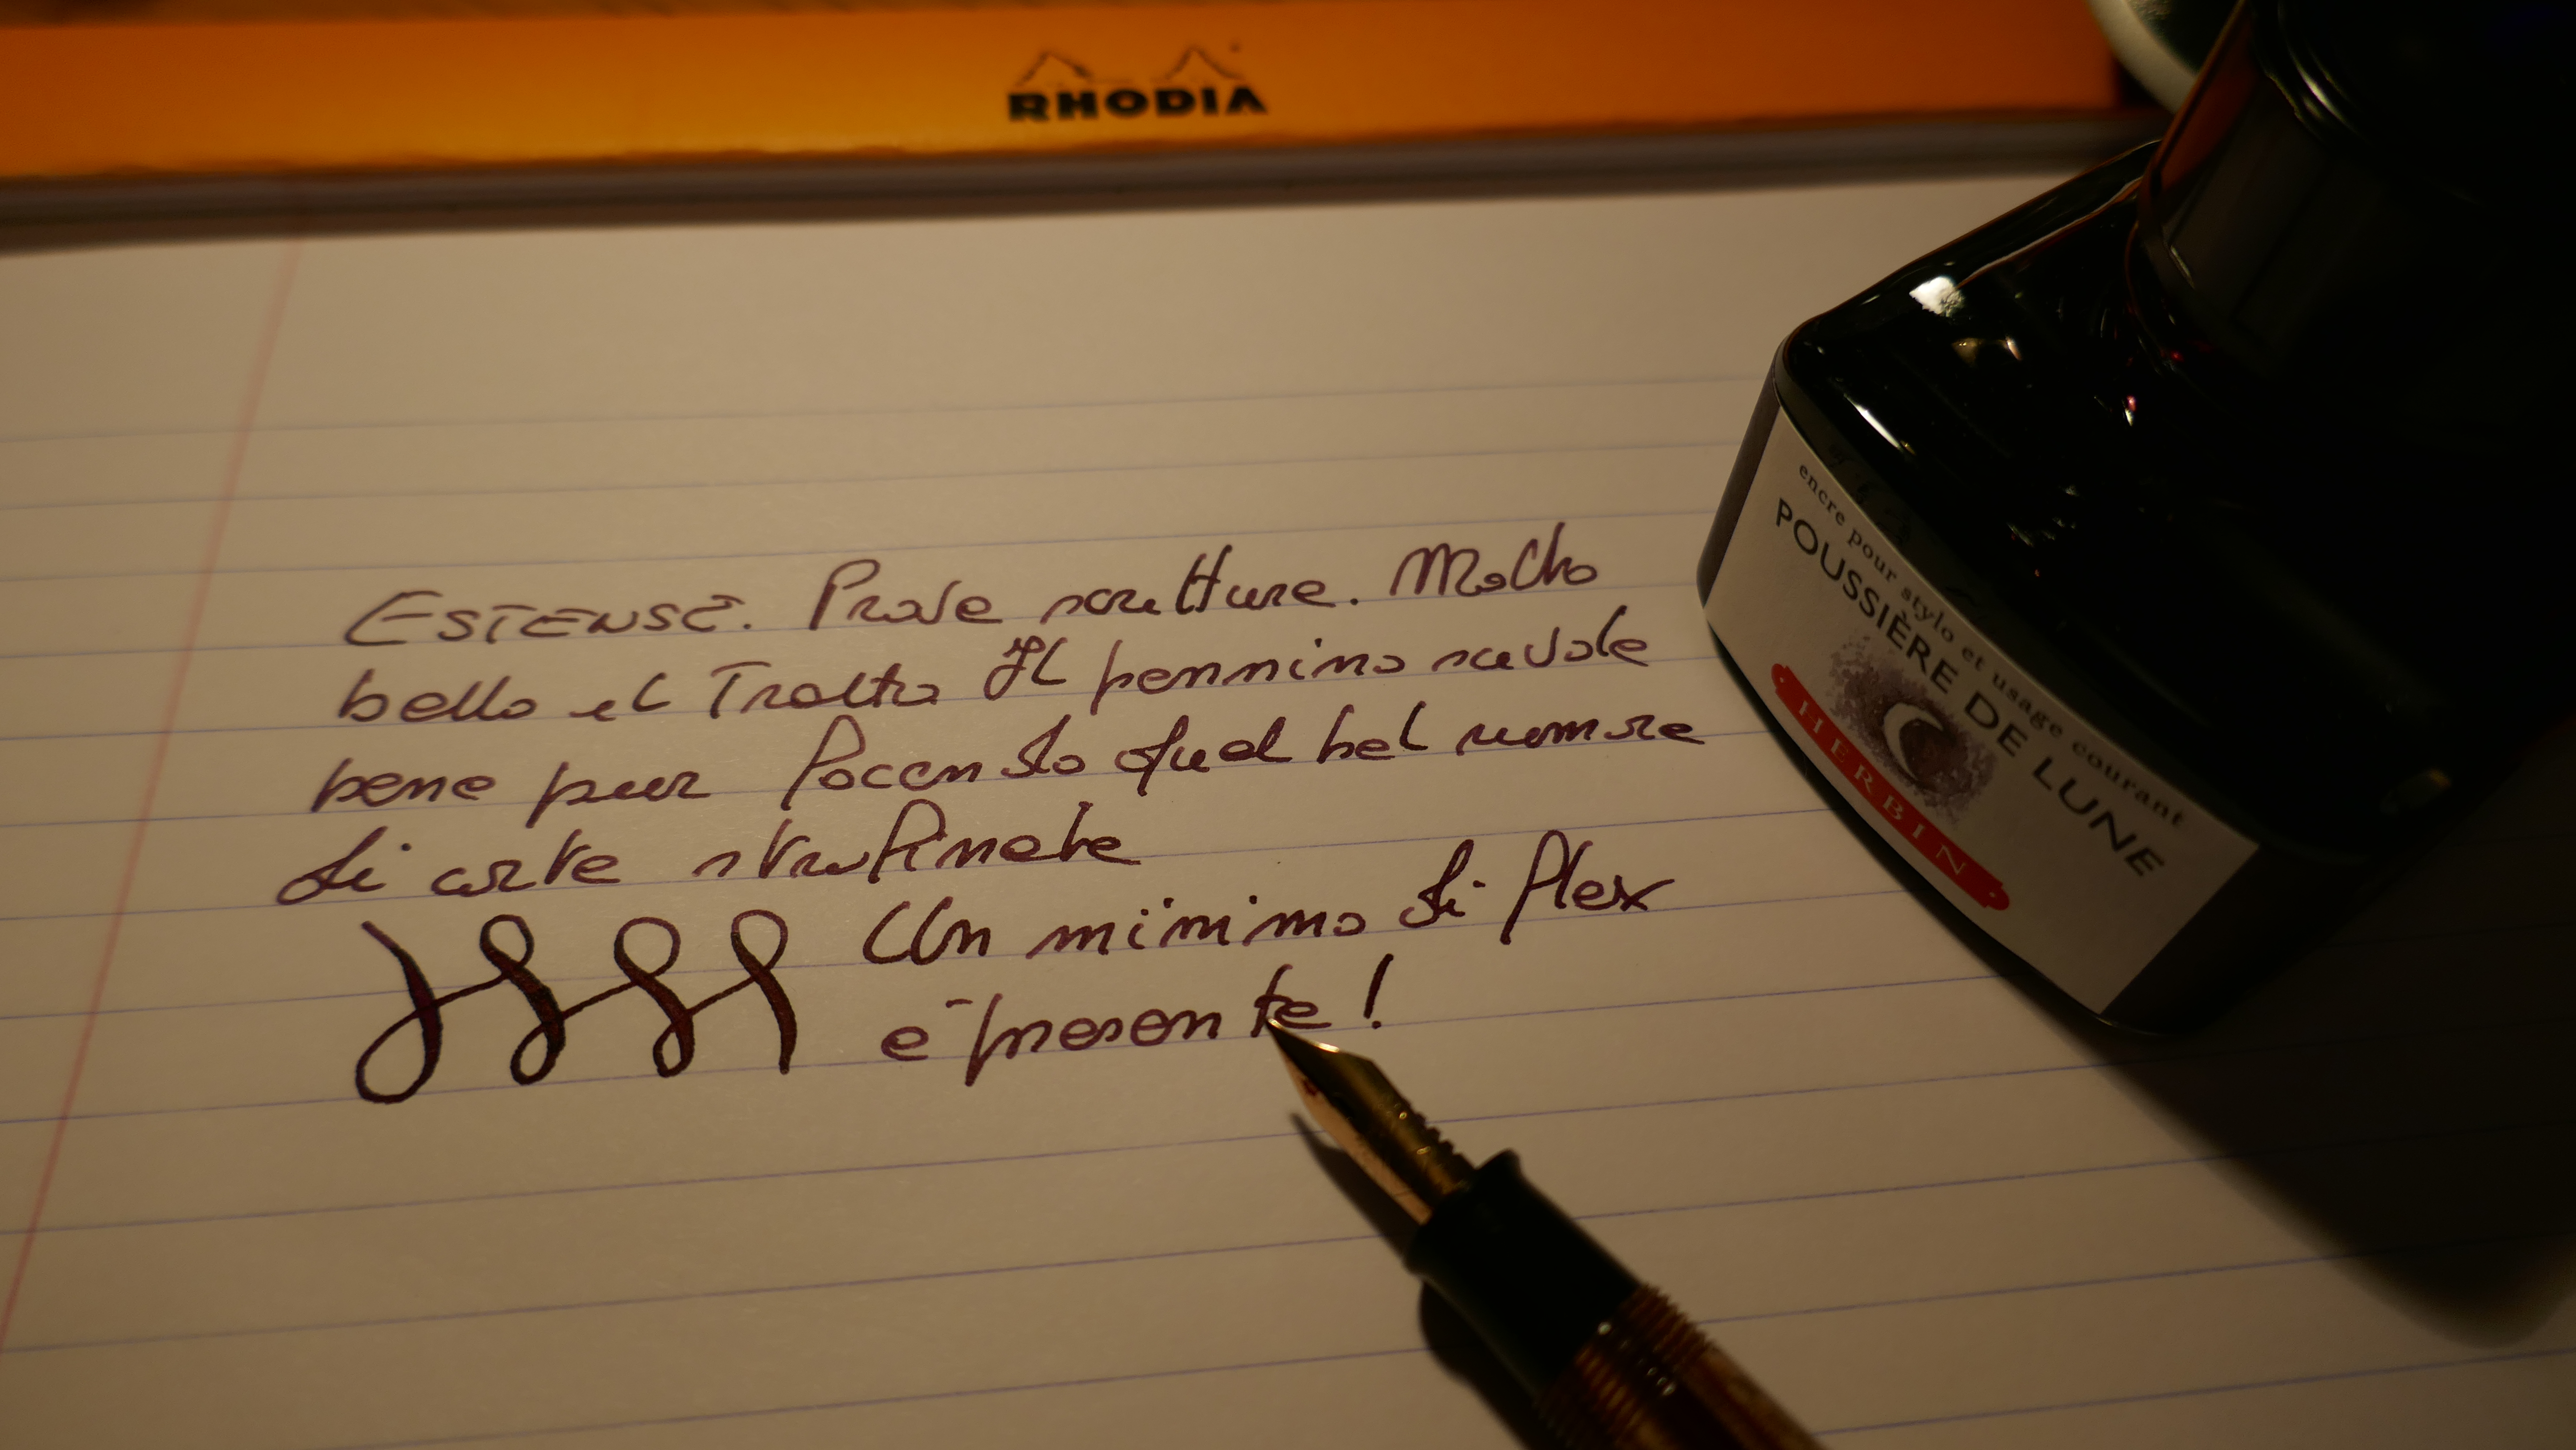 RHODIA
ESTENSE. Prove scritture. Molto
bello il Tratto Il pennino scivola
bene pur facendo quel bel rumore
di carta strofinata
Un minimo di flex
è presente!
encre pour stylo et usage courant
POUSSIÈRE DE LUNE
HERBIN